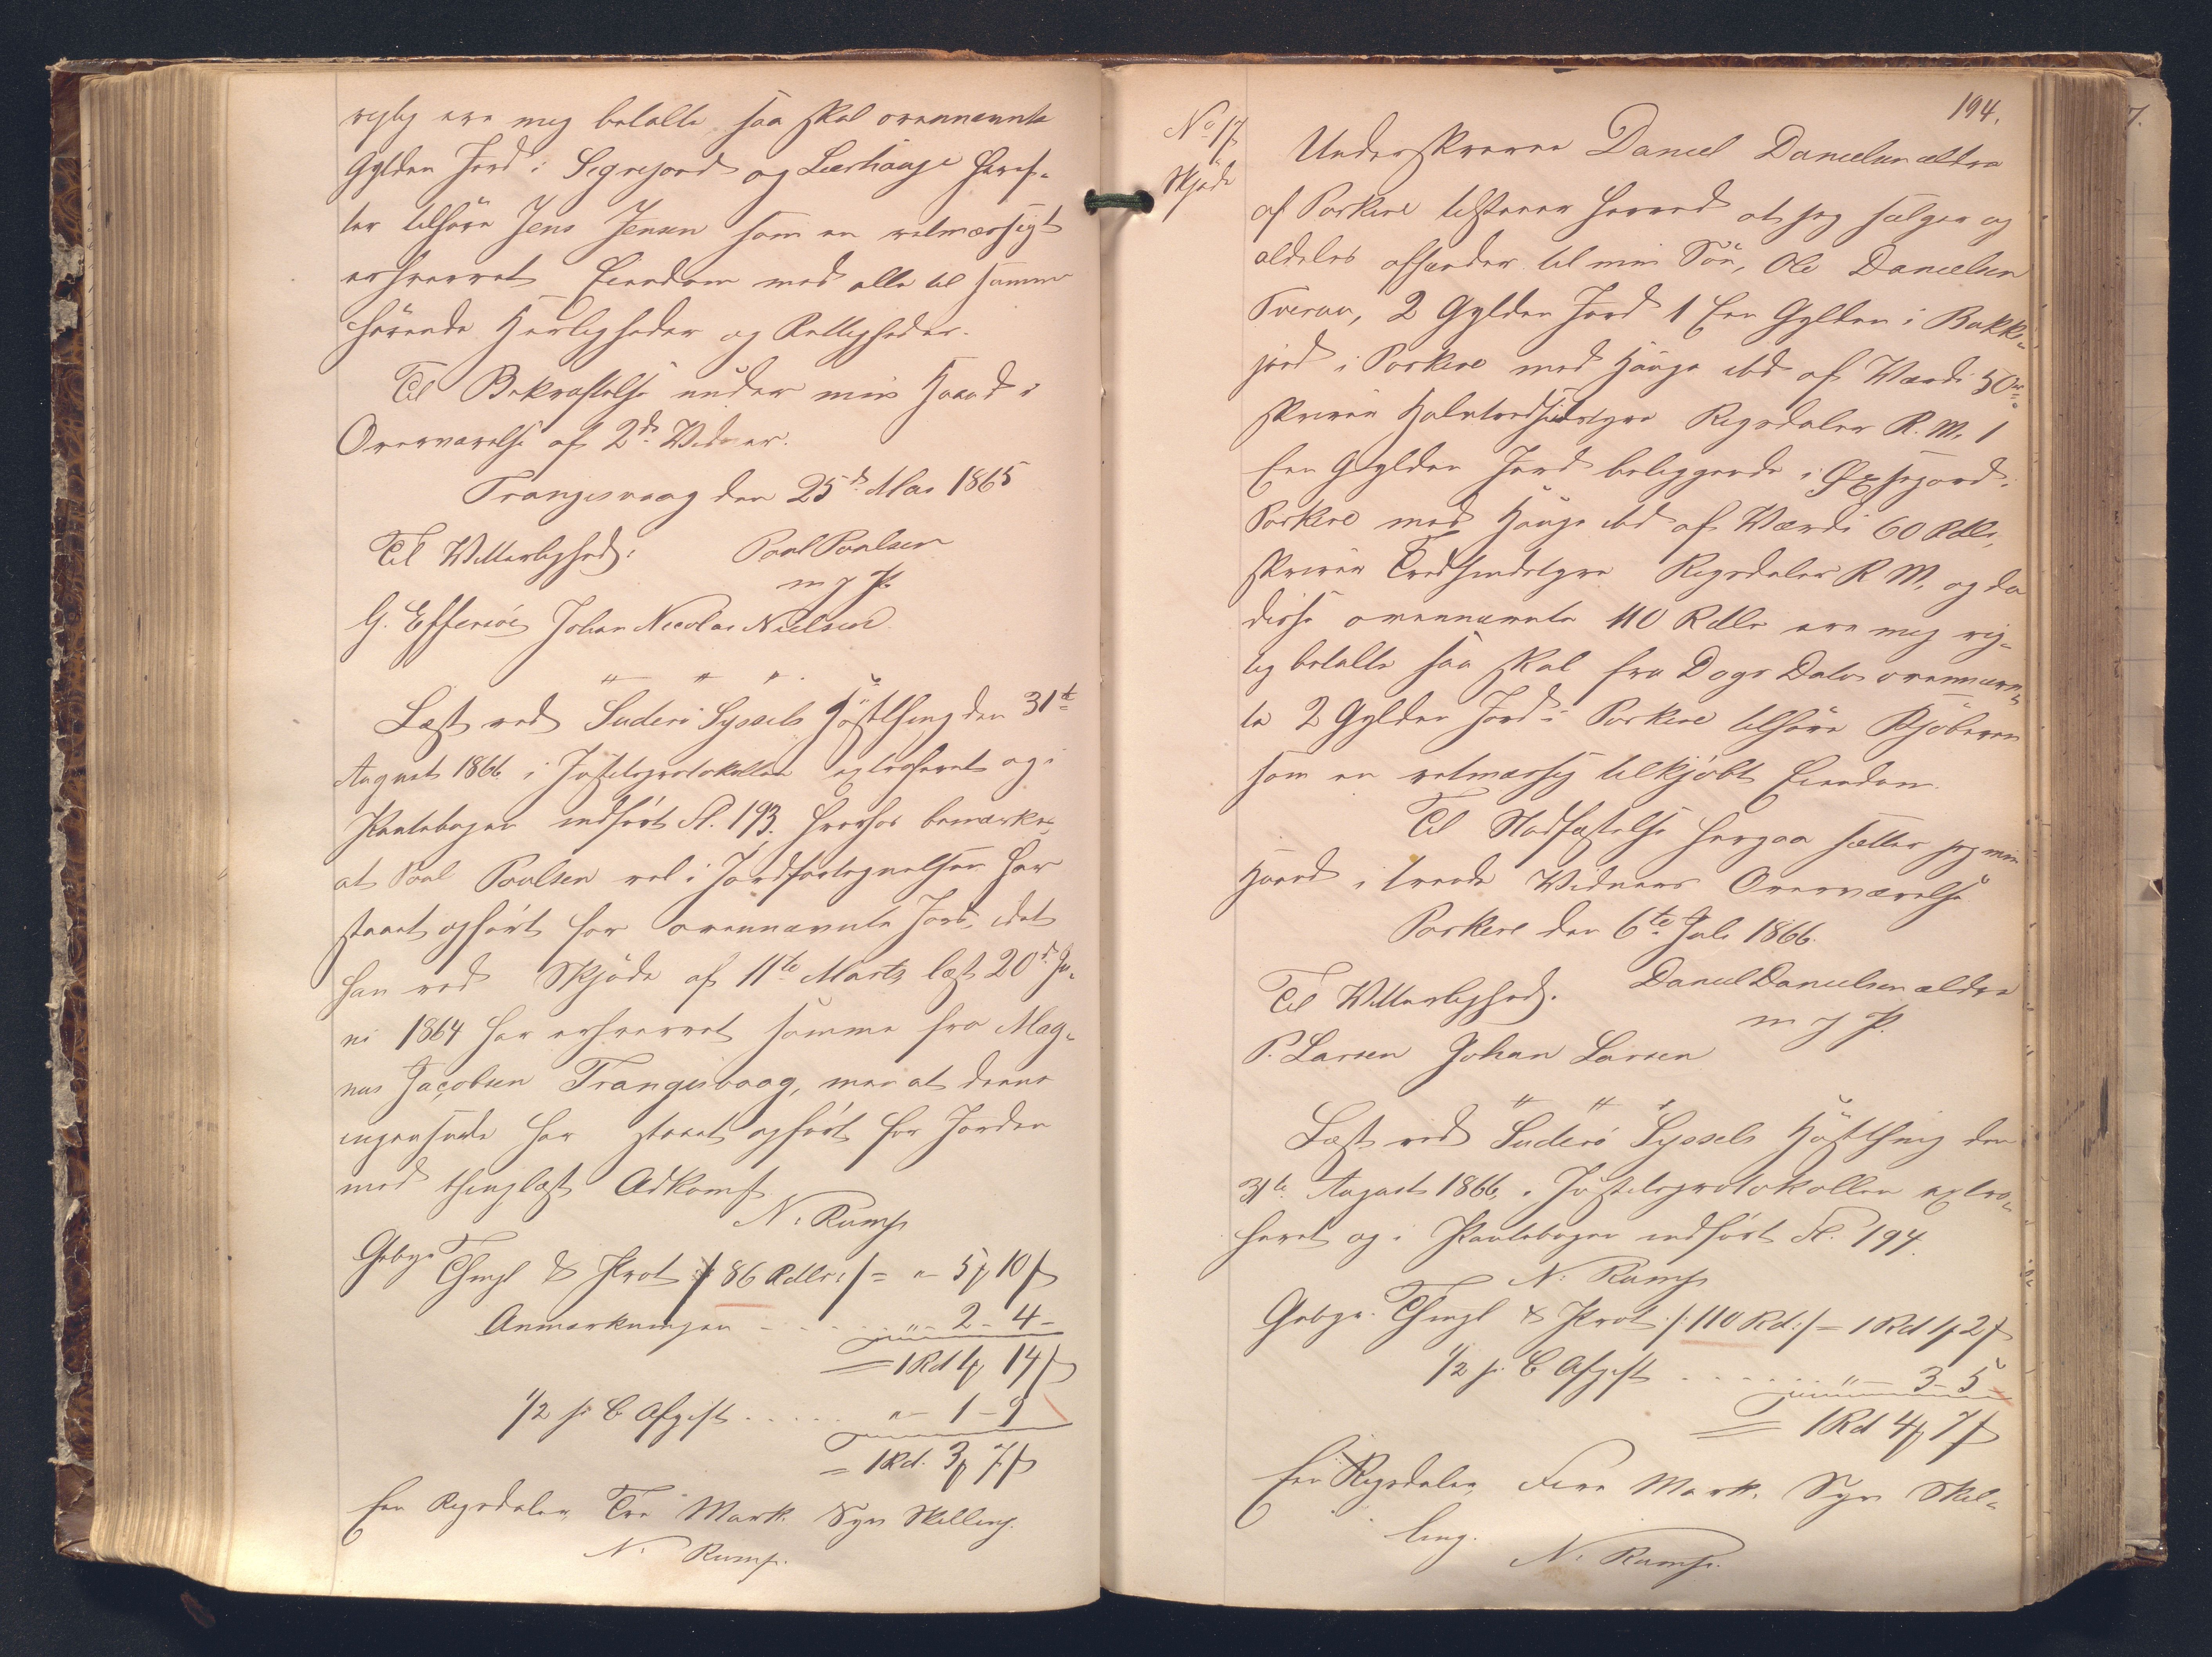 rigtig ere mig betalte saa skal ovennævnte
Gylden Jord i Segrejord og Leerhauge heref-
ter tilhøre Jens Jensen som en retmæssigt
erhvervet Eiendom med alle til samme
hørende Herligheder og Rettigheder.
Til Bekræftelse under min Haand i
Overværelse af 2de Vidner.
Trangisvaag den 25de Mai 1865
Til Vitterlighed: Poul Poulsen
m f P.
G. Effersöe Johan Nicolai Nielsen
" " "
Læst ved Suderö Syssels Høstthing den 31te
August 1866 i Justitsprotokollen extraheret og i
Pantebogen indført Fl. 193. hvorhos bemærkes
at Poul Poulsen vel i Jordfortegnelsen har
staaet opført for ovennævnte Jord, idet
han ved Skjøde af 11te Marts læst 20de Ju-
ni 1864 har erhvervet samme fra Mag-
nus Jacobsen Trangisvaag, men at denne
ingensinde har staaet opført for Jorden
med thinglæst Adkomst
N: Rump
Gebyr Thingl & Prot /: 86 Rdlr :/ = "- 5 ₰ 10 ß
Anmærkningen - - - - "- 2 - 4 -
= 1 Rd 1 ₰ 14 ß
1/2 p C Afgift ..... "- 1 - 9
= 1 Rd. 3 ₰ 7 ß
Een Rigsdaler Tre Mark Syv Skilling.
N. Rump.
194.
No 17
Skjøde
Underskrevne Daniel Danielsen ældre
af Porkere tilstaaer herved at jeg sælger og
aldeles afhænder til min Søn, Ole Danielsen
Tveraa, 2 Gylden Jord 1 Een Gylden i Bakke-
jord i Porkere med Hauge ibd af Værdi 50 er
skriver Halvtredsindstyve Rigsdaler R. M. 1
Een Gylden Jord beliggende i Øxsejord i
Porkere med Hauge ibd af Værdi 60 Rdlr,
skriver Tredsindstyve Rigsdaler R M. og da
disse ovennævnte 110 Rdlr ere mig rig-
tig betalte saa skal fra Dags Dato ovennævn-
te 2 Gylden Jord i Porkere tilhøre Kjøberen
som en retmæssig tilkjøbt Eiendom.
Til Stadfæstelse herpaa sætter jeg min
Haand i tvende Vidners Overværelse
Porkere den 6te Juli 1866.
Til Vitterlighed. Daniel Danielsen ældre
m f P.
P. Larsen Johan Larsen
" " "
Læst ved Suderö Syssels Høstthing den
31te August 1866, i Justitsprotokollen extra-
heret og i Pantebogen indført Fl. 194.
N: Rump
Gebyr. Thingl & Prot /: 110 Rd :/ = 1 Rd 1 ₰ 2 ß
1/2 p C Afgift ..... "- 3 - 5
= 1 Rd 4 ₰ 7 ß
Een Rigsdaler Fire Mark. Syv Skil-
ling.
N. Rump.
7.